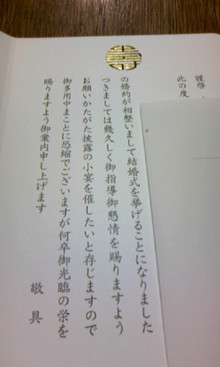 謹啓
此の度
の婚約が相整いまして結婚式を挙げることになりました
つきましては幾久しく御指導御懇情を賜りますよう
お願いかたがた披露の小宴を催したいと存じますので
御多用中まことに恐縮でございますが何卒御光臨の栄を
賜りますよう御案内申し上げます
敬具